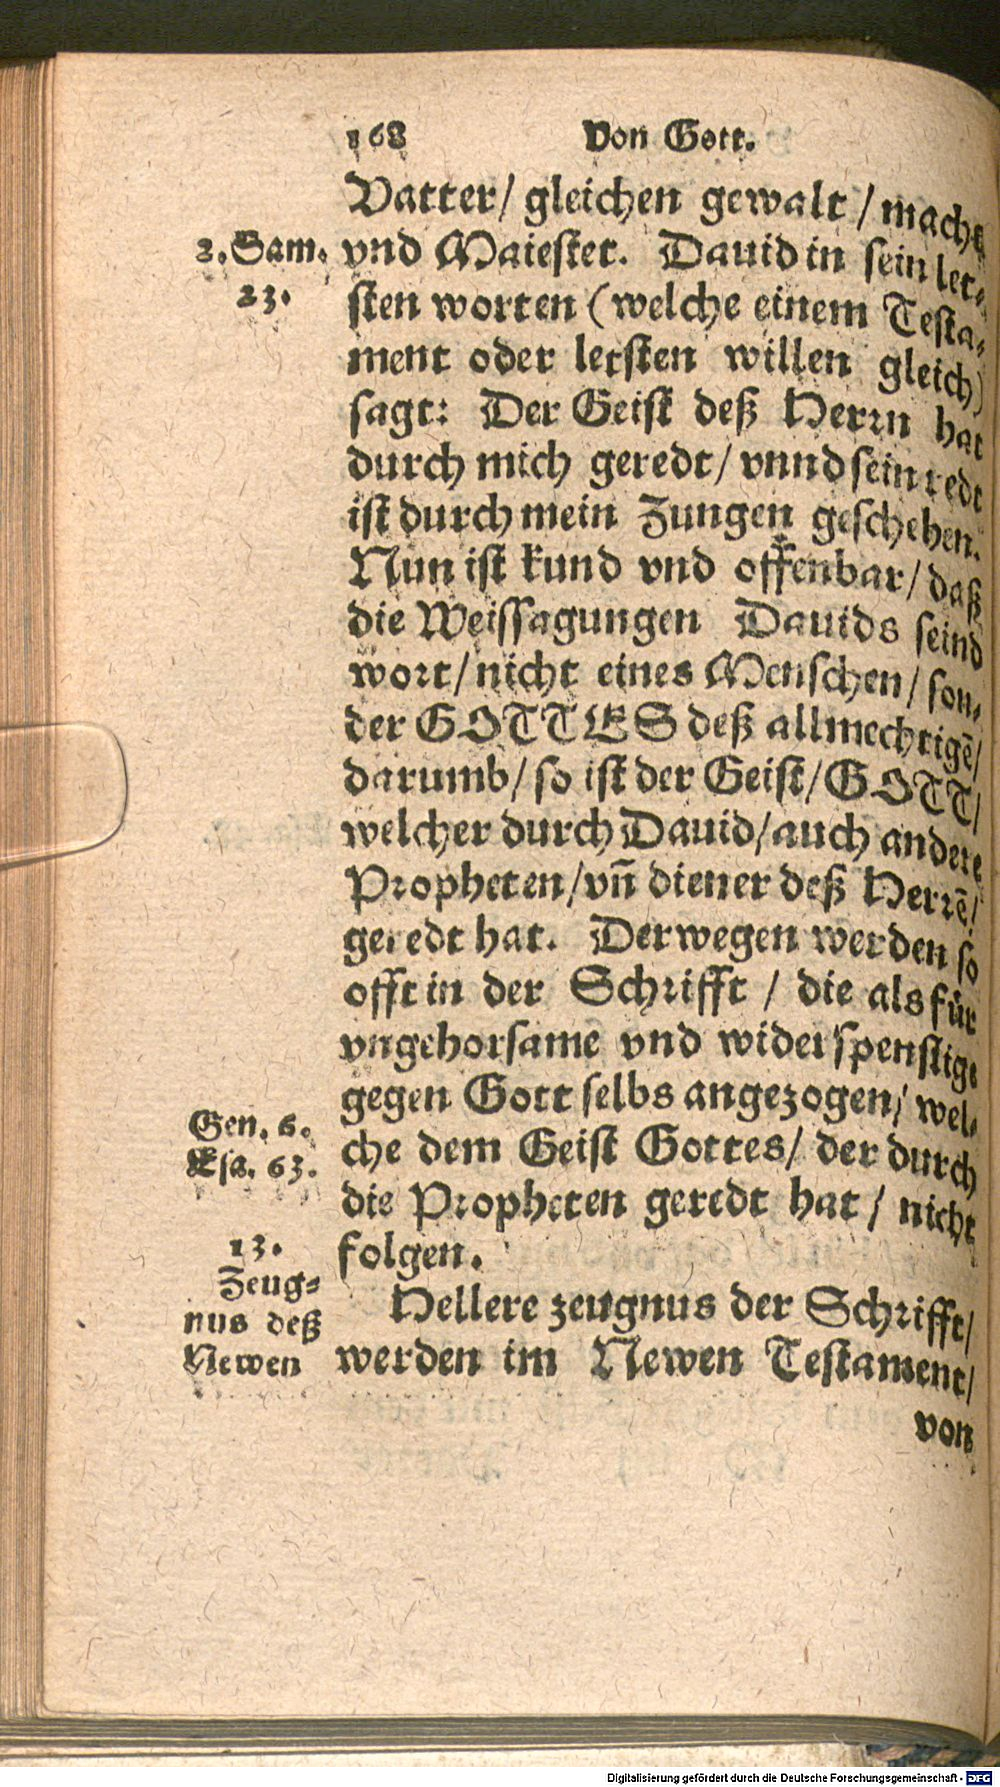 168 Von Gott.
Vatter/ gleichen gewalt / macht
2. Sam. 23.
vnd Maiestet. Dauid in sein let-
sten worten (welche einem Testa-
ment oder letsten willen gleich)
sagt: Der Geist deß Herrn hat
durch mich geredt/ vnnd sein redt
ist durch mein Zungen geschehen.
Nun ist kund vnd offenbar/ daß
die Weissagungen Dauids seind
wort/ nicht eines Menschen/ son-
der GOTTES deß allmechtigē/
darumb/ so ist der Geist/ GOTT/
welcher durch Dauid/ auch andere
Propheten/ vñ diener deß Herrē/
geredt hat. Derwegen werden so
offt in der Schrifft / die als für
vngehorsame vnd widerspenstige
gegen Gott selbs angezogen/ wel-
Gen. 6.
Esa. 63.
che dem Geist Gottes/ der durch
die Propheten geredt hat / nicht
folgen.
13.
Zeug-
nus deß
Newen
Hellere zeugnus der Schrifft/
werden im Newen Testament/
von
Digitalisierung gefördert durch die Deutsche Forschungsgemeinschaft - DFG